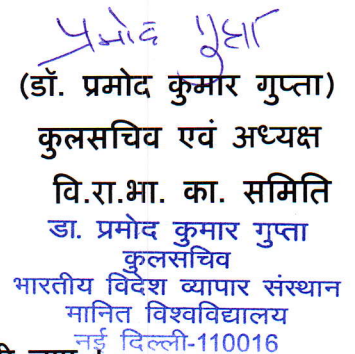 प्रमोद गुप्ता
(डॉ. प्रमोद कुमार गुप्ता)
कुलसचिव एवं अध्यक्ष
वि.रा.भा. का. समिति
डा. प्रमोद कुमार गुप्ता
कुलसचिव
भारतीय विदेश व्यापार संस्थान
मानित विश्वविद्यालय
नई दिल्ली-110016